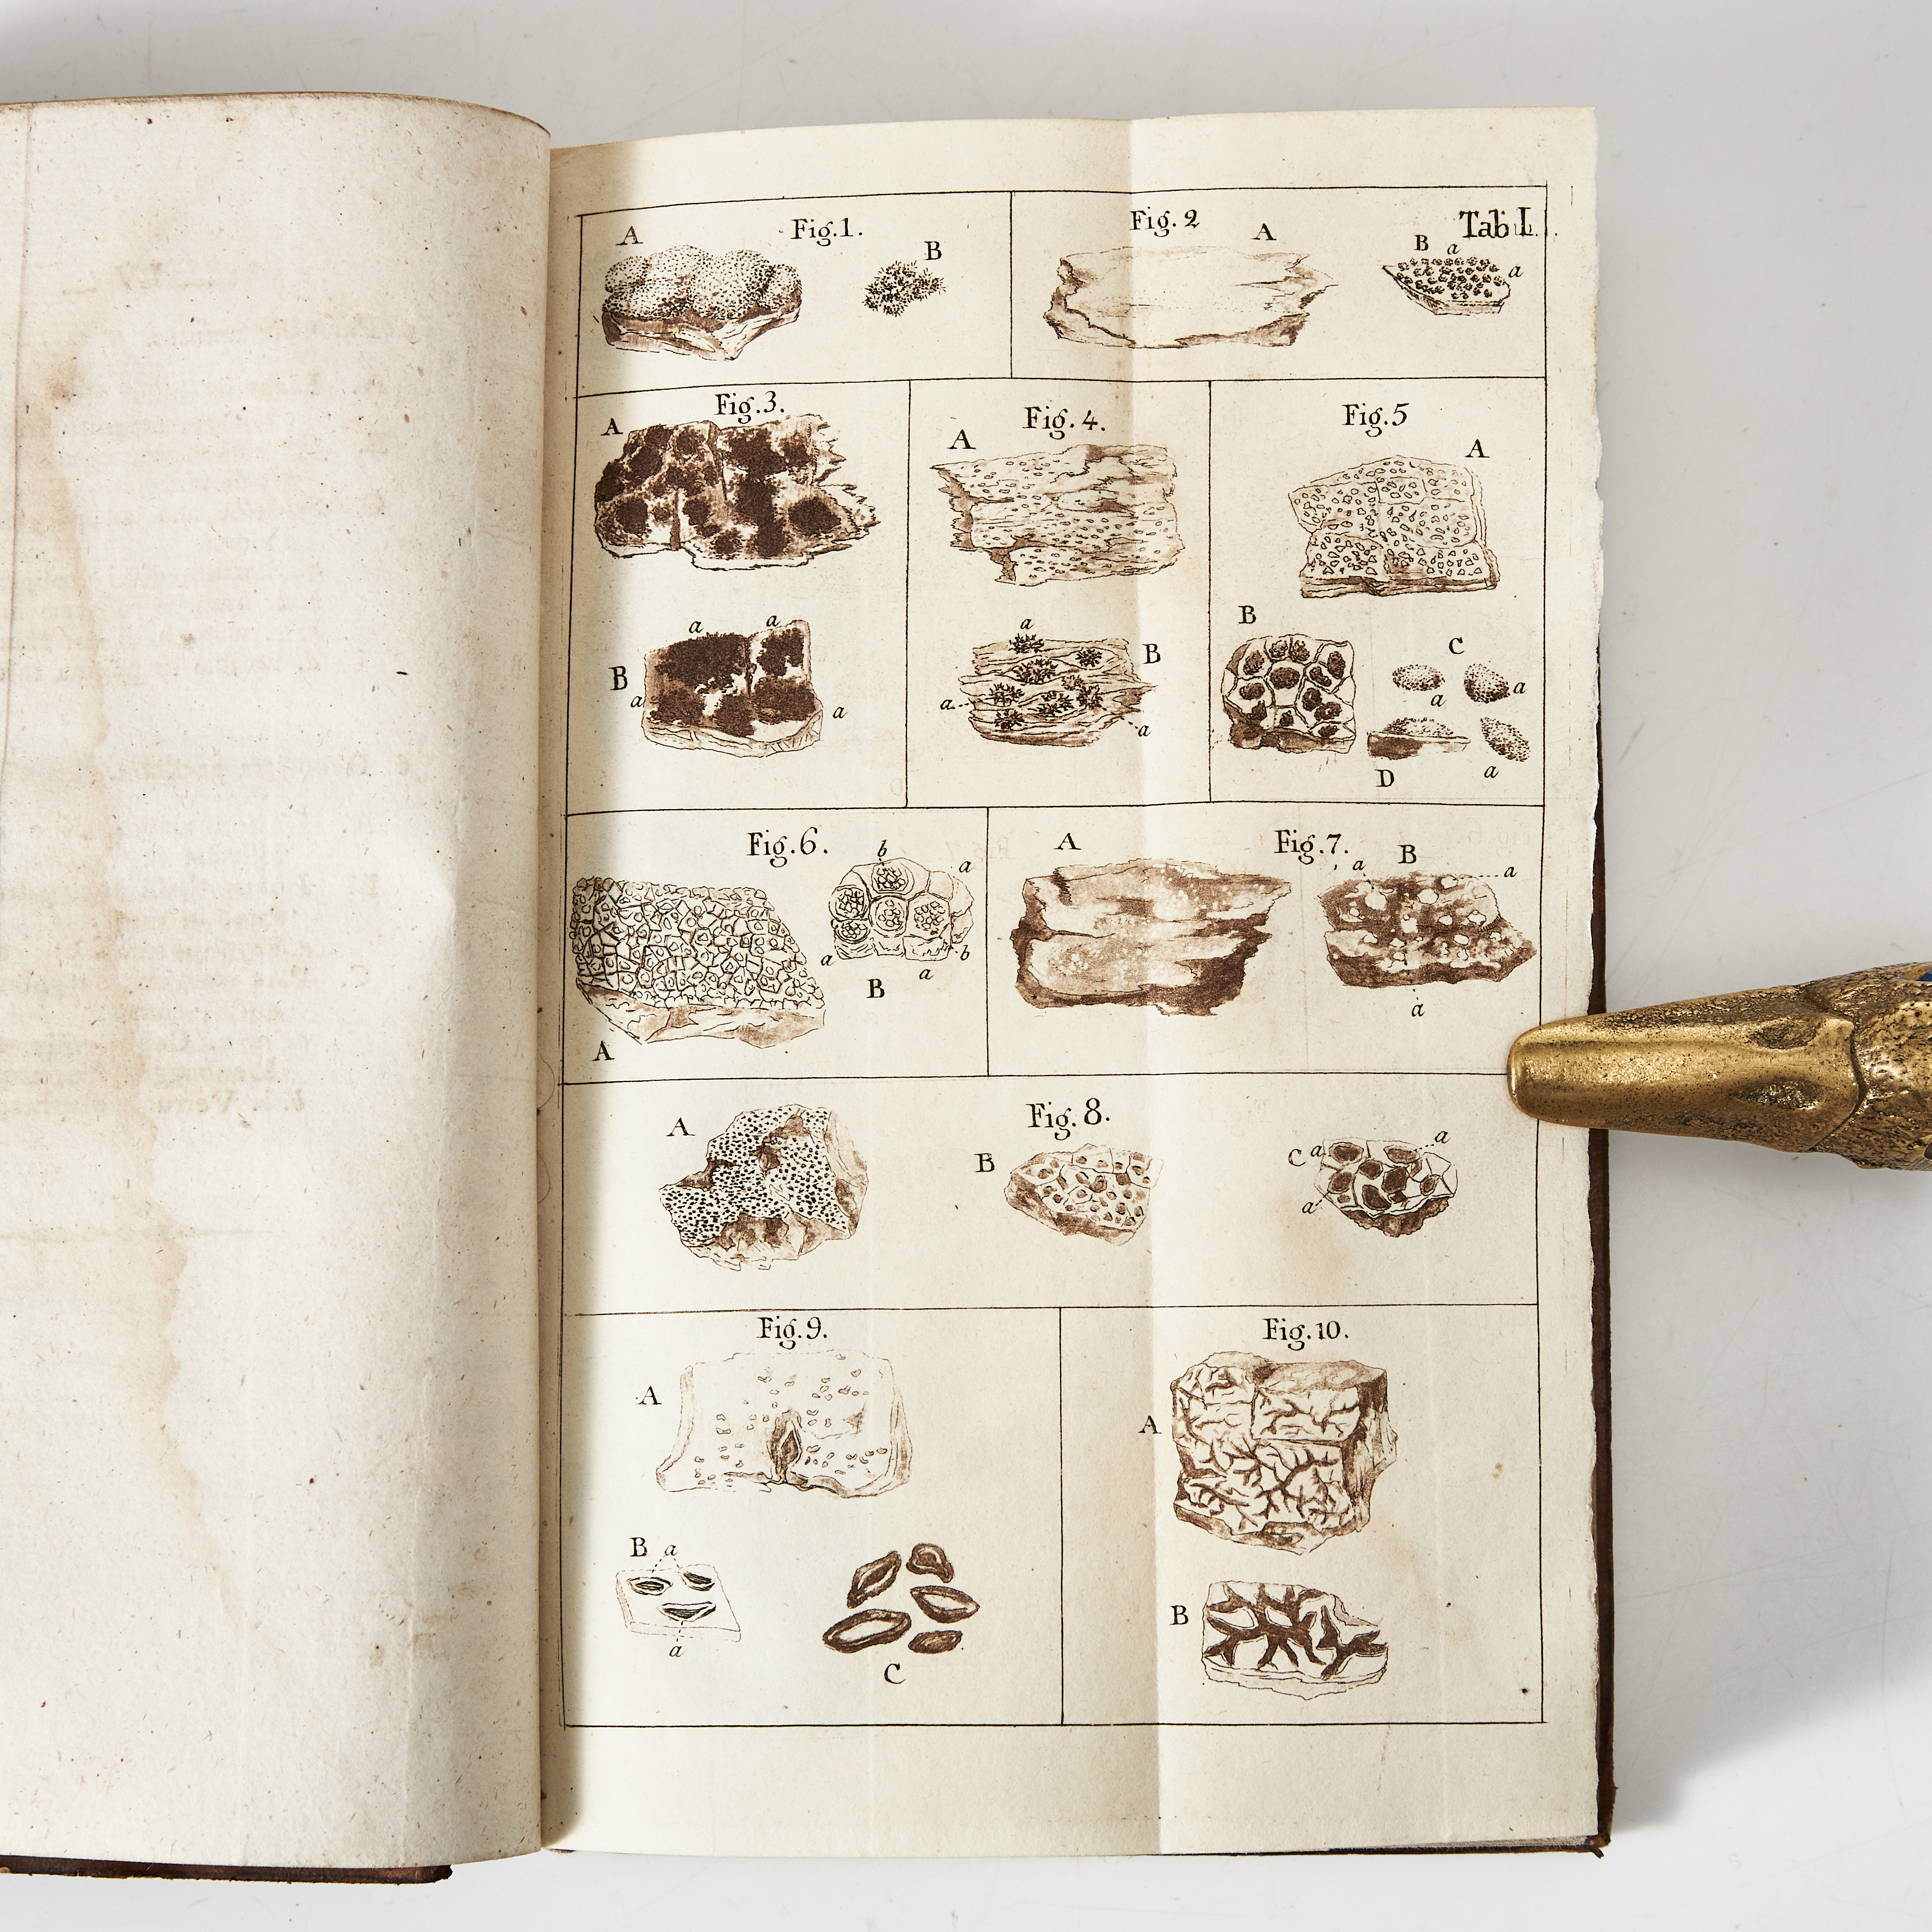 Tab I.
Fig.1.
A
B
Fig. 2
A
B
a
a
Fig.3.
A
B
a
a
a
a
Fig.4.
A
B
a
a
a
Fig.5
A
B
C
a
a
a
D
Fig.6.
A
B
b
a
a
a
b
Fig.7.
A
B
a
a
a
Fig.8.
A
B
C
a
a
a
Fig.9.
A
B
a
a
C
Fig.10.
A
B